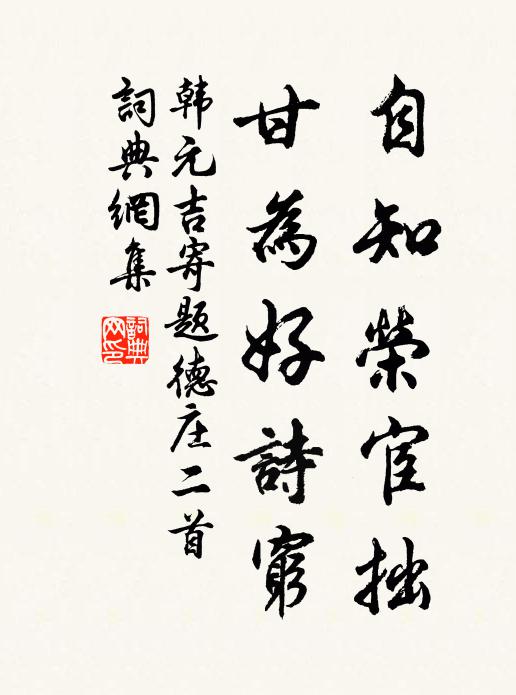 自知榮宦拙
甘為好詩窮
韩元吉寄题德庄二首
詞典網集
詞典网印